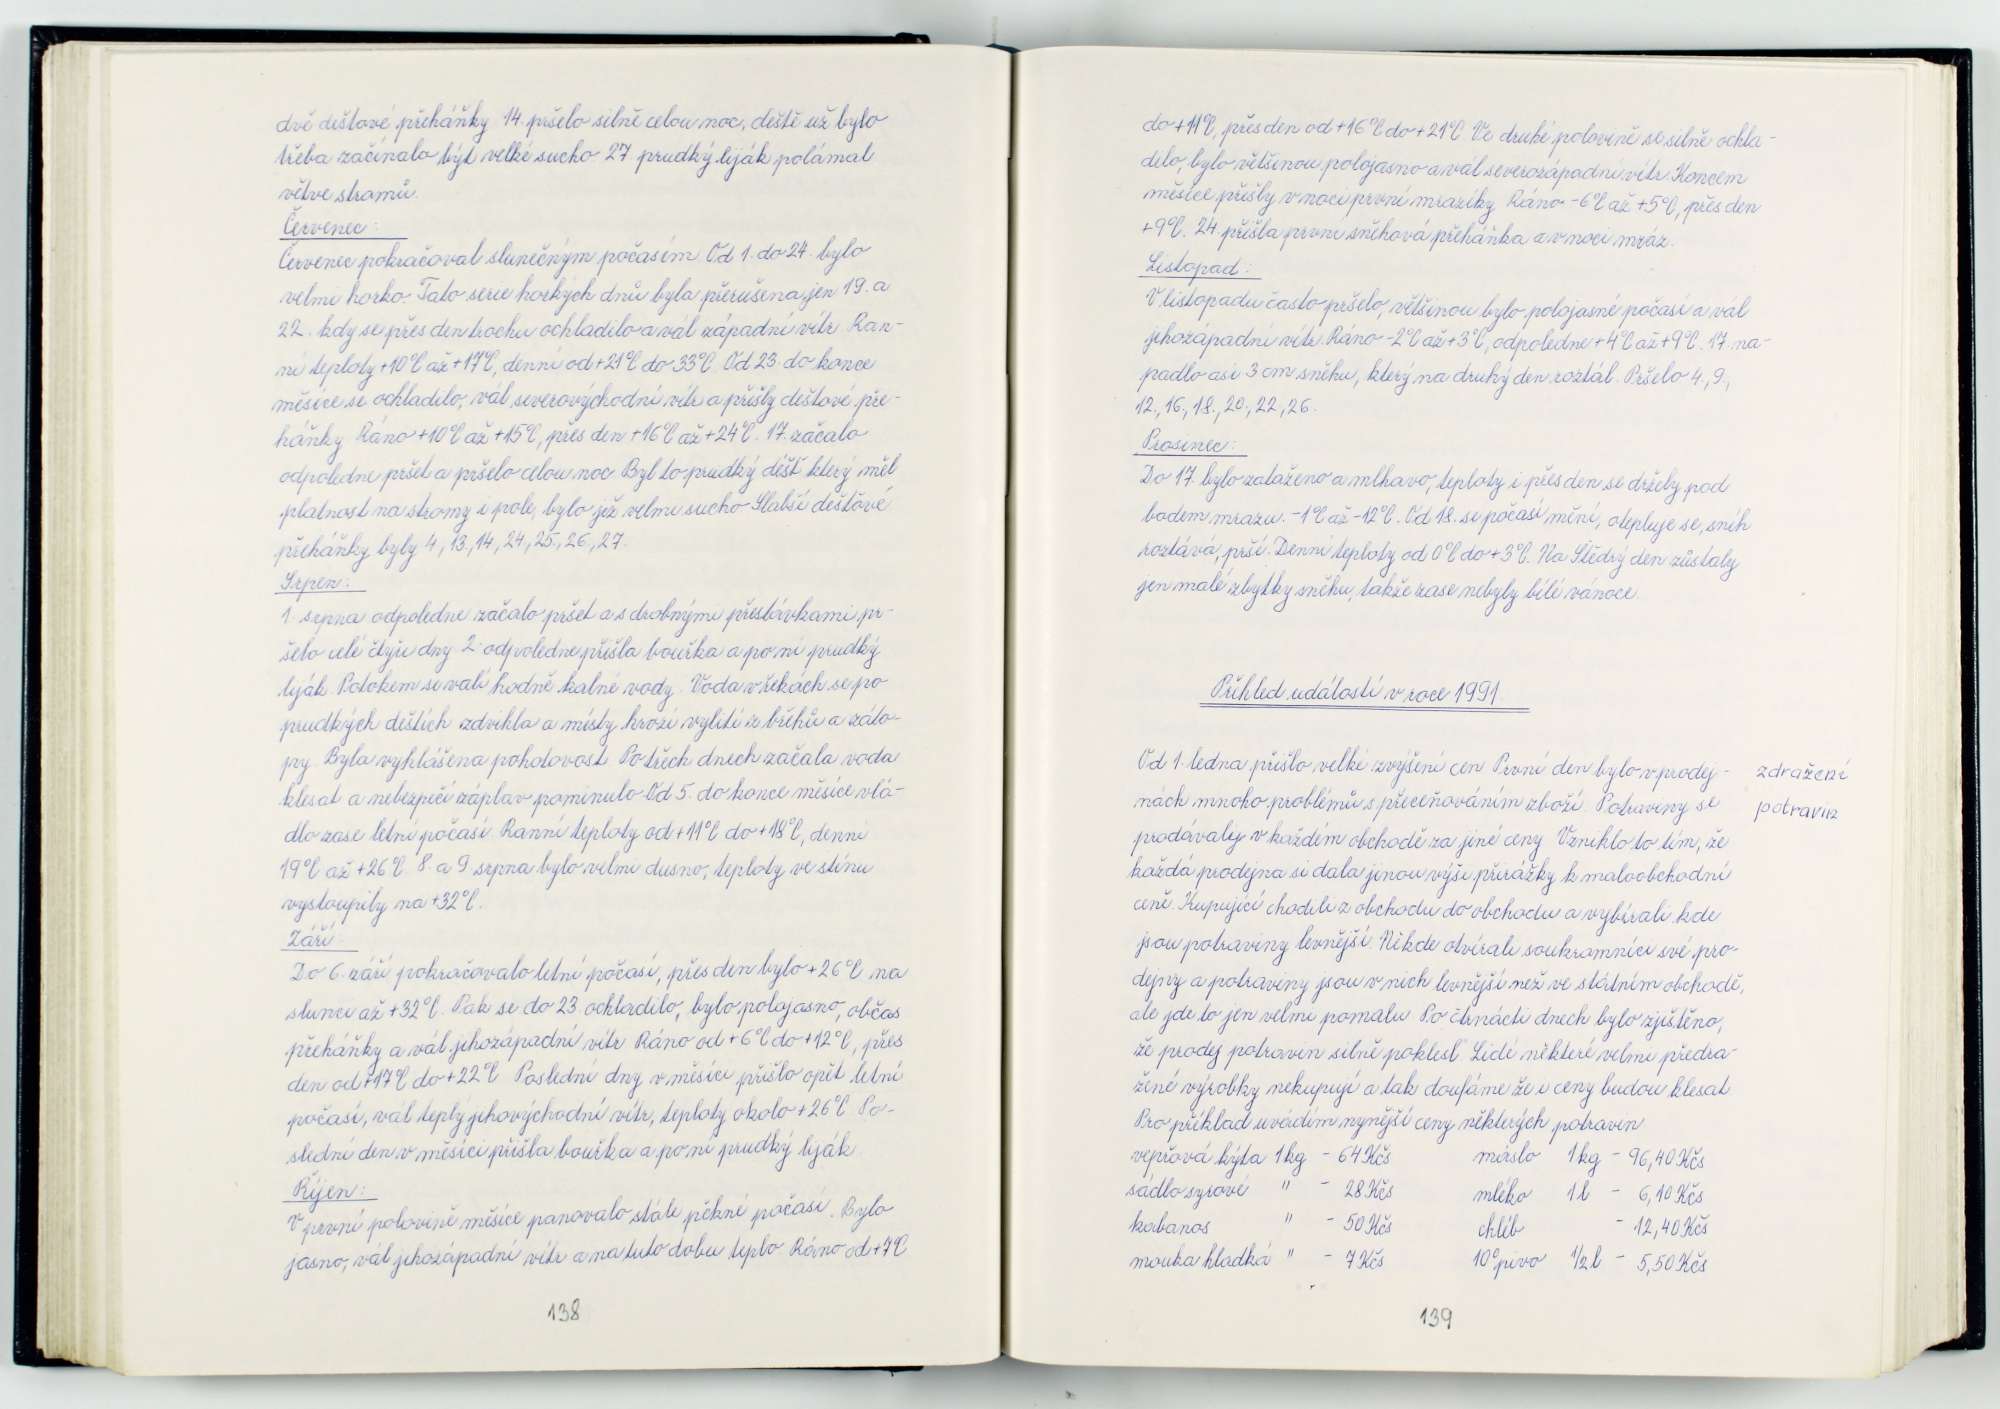 dvě dešťové přeháňky 14. pršelo silně celou noc, deště už bylo
třeba začínalo být velké sucho 27. prudký liják polámal
větve stromů.
Červenec:
Červenec pokračoval slunečným počasím Od 1. do 24. bylo
velmi horko Tato serie horkých dnů byla přerušena jen 19. a
22. kdy se přes den trochu ochladilo a vál západní vítr. Ran-
ní teploty +10°C až +17°C, denní od +21°C do 33°C. Od 23. do konce
měsíce se ochladilo, vál severovýchodní vítr a přišly dešťové pře-
háňky Ráno +10°C až +15°C, přes den +16°C až +24°C. 17. začalo
odpoledne pršet a pršelo celou noc Byl to prudký déšť který měl
platnost na stromy i pole, bylo již velmi sucho Slabší dešťové
přeháňky byly 4., 13., 14., 24., 25., 26., 27.
Srpen:
1. srpna odpoledne začalo pršet a s drobnými přestávkami pr-
šelo celé čtyři dny 2. odpoledne přišla bouřka a po ní prudký
liják. Potokem se valí hodně kalné vody. Voda v řekách se po
prudkých deštích zdvikla a místy hrozí vylití z břehů a záto-
py. Byla vyhlášena pohotovost Po třech dnech začala voda
klesat a nebezpečí záplav pominulo Od 5. do konce měsíce vlá-
dlo zase letní počasí. Ranní teploty od +11°C do +18°C, denní
19°C až +26°C 8. a 9 srpna bylo velmi dusno, teploty ve stínu
vystoupily na +32°C.
Září:
Do 6. září pokračovalo letní počasí, přes den bylo +26°C na
slunci až +32°C. Pak se do 23. ochladilo, bylo polojasno, občas
přeháňky a vál jihozápadní vítr Ráno od +6°C do +12°C, přes
den od +17°C do +22°C Poslední dny v měsíci přišlo opět letní
počasí, vál teplý jihovýchodní vítr, teploty okolo +26°C Po-
slední den v měsíci přišla bouřka a po ní prudký liják.
Říjen:
V první polovině měsíce panovalo stále pěkné počasí. Bylo
jasno, vál jihozápadní vítr a na tuto dobu teplo Ráno od +7°C
138
do +11°C, přes den od +16°C do +21°C. Ve druhé polovině se silně ochla-
dilo, bylo většinou polojasno a vál severozápadní vítr Koncem
měsíce přišly v noci první mrazíky Ráno -6°C až +5°C, přes den
+9°C. 24. přišla první sněhová přeháňka a v noci mráz.
Listopad:
V listopadu často pršelo, většinou bylo polojasné počasí a vál
jihozápadní vítr. Ráno -2°C až +3°C, odpoledne +4°C až +9°C. 17. na-
padlo asi 3 cm sněhu, který na druhý den roztál. Pršelo 4., 9.,
12., 16., 18., 20., 22., 26.
Prosinec:
Do 17. bylo zataženo a mlhavo, teploty i přes den se držely pod
bodem mrazu. -1°C až -12°C. Od 18. se počasí mění, otepluje se, sníh
roztává, prší. Denní teploty od 0°C do +3°C. Na Štědrý den zůstaly
jen malé zbytky sněhu, takže zase nebyly bílé vánoce.
Přehled událostí v roce 1991.
Od 1. ledna přišlo velké zvýšení cen První den bylo v prodej-
nách mnoho problémů s přeceňováním zboží. Potraviny se
prodávaly v každém obchodě za jiné ceny Vzniklo to tím, že
každá prodejna si dala jinou výši přirážky k maloobchodní
ceně. Kupující chodili z obchodu do obchodu a vybírali kde
jsou potraviny levnější. Někde otvírali soukromníci své pro-
dejny a potraviny jsou v nich levnější než ve státním obchodě,
ale jde to jen velmi pomalu Po čtrnácti dnech bylo zjištěno,
že prodej potravin silně poklesl Lidé některé velmi předra-
žené výrobky nekupují a tak doufáme že i ceny budou klesat
Pro příklad uvádím nynější ceny některých potravin
vepřová kýta 1 kg - 64 Kčs máslo 1 kg - 96,40 Kčs
sádlo syrové " - 28 Kčs mléko 1 l - 6,10 Kčs
kabanos " - 50 Kčs chléb - 12,40 Kčs
mouka hladká " - 7 Kčs 10° pivo 1/2 l - 5,50 Kčs
zdražení
potravin
139